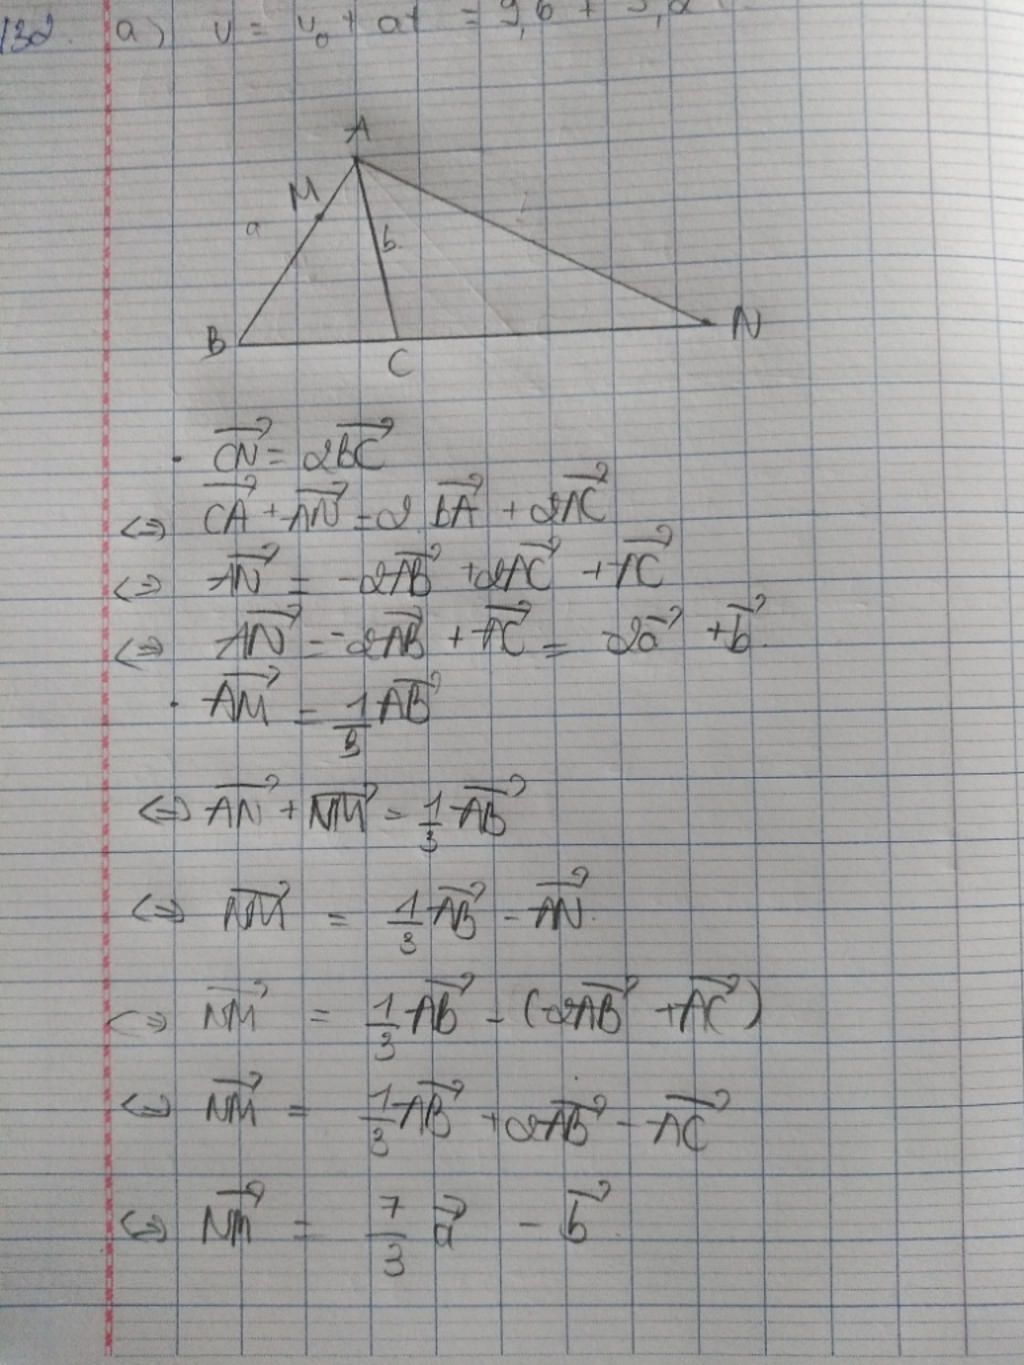 132. a) v = v₀ + at = 9,6 +
A
M
a
b
B
C
N
· \overrightarrow{CN} = 2\overrightarrow{BC}
<=> \overrightarrow{CA} + \overrightarrow{AN} = 2 \overrightarrow{bA} + 2\overrightarrow{AC}
<=> \overrightarrow{AN} = -2\overrightarrow{AB} + 2\overrightarrow{AC} + \overrightarrow{AC}
<=> \overrightarrow{AN} = -2\overrightarrow{AB} + \overrightarrow{AC} = 2\vec{a} + \vec{b}.
· \overrightarrow{AM} = \frac{1}{3}\overrightarrow{AB}
<=> \overrightarrow{AN} + \overrightarrow{NM} = \frac{1}{3}\overrightarrow{AB}
<=> \overrightarrow{NM} = \frac{1}{3}\overrightarrow{AB} - \overrightarrow{AN}.
<=> \overrightarrow{NM} = \frac{1}{3}\overrightarrow{AB} - (-2\overrightarrow{AB} + \overrightarrow{AC})
<=> \overrightarrow{NM} = \frac{1}{3}\overrightarrow{AB} + 2\overrightarrow{AB} - \overrightarrow{AC}
<=> \overrightarrow{NM} = \frac{7}{3}\vec{a} - \vec{b}.